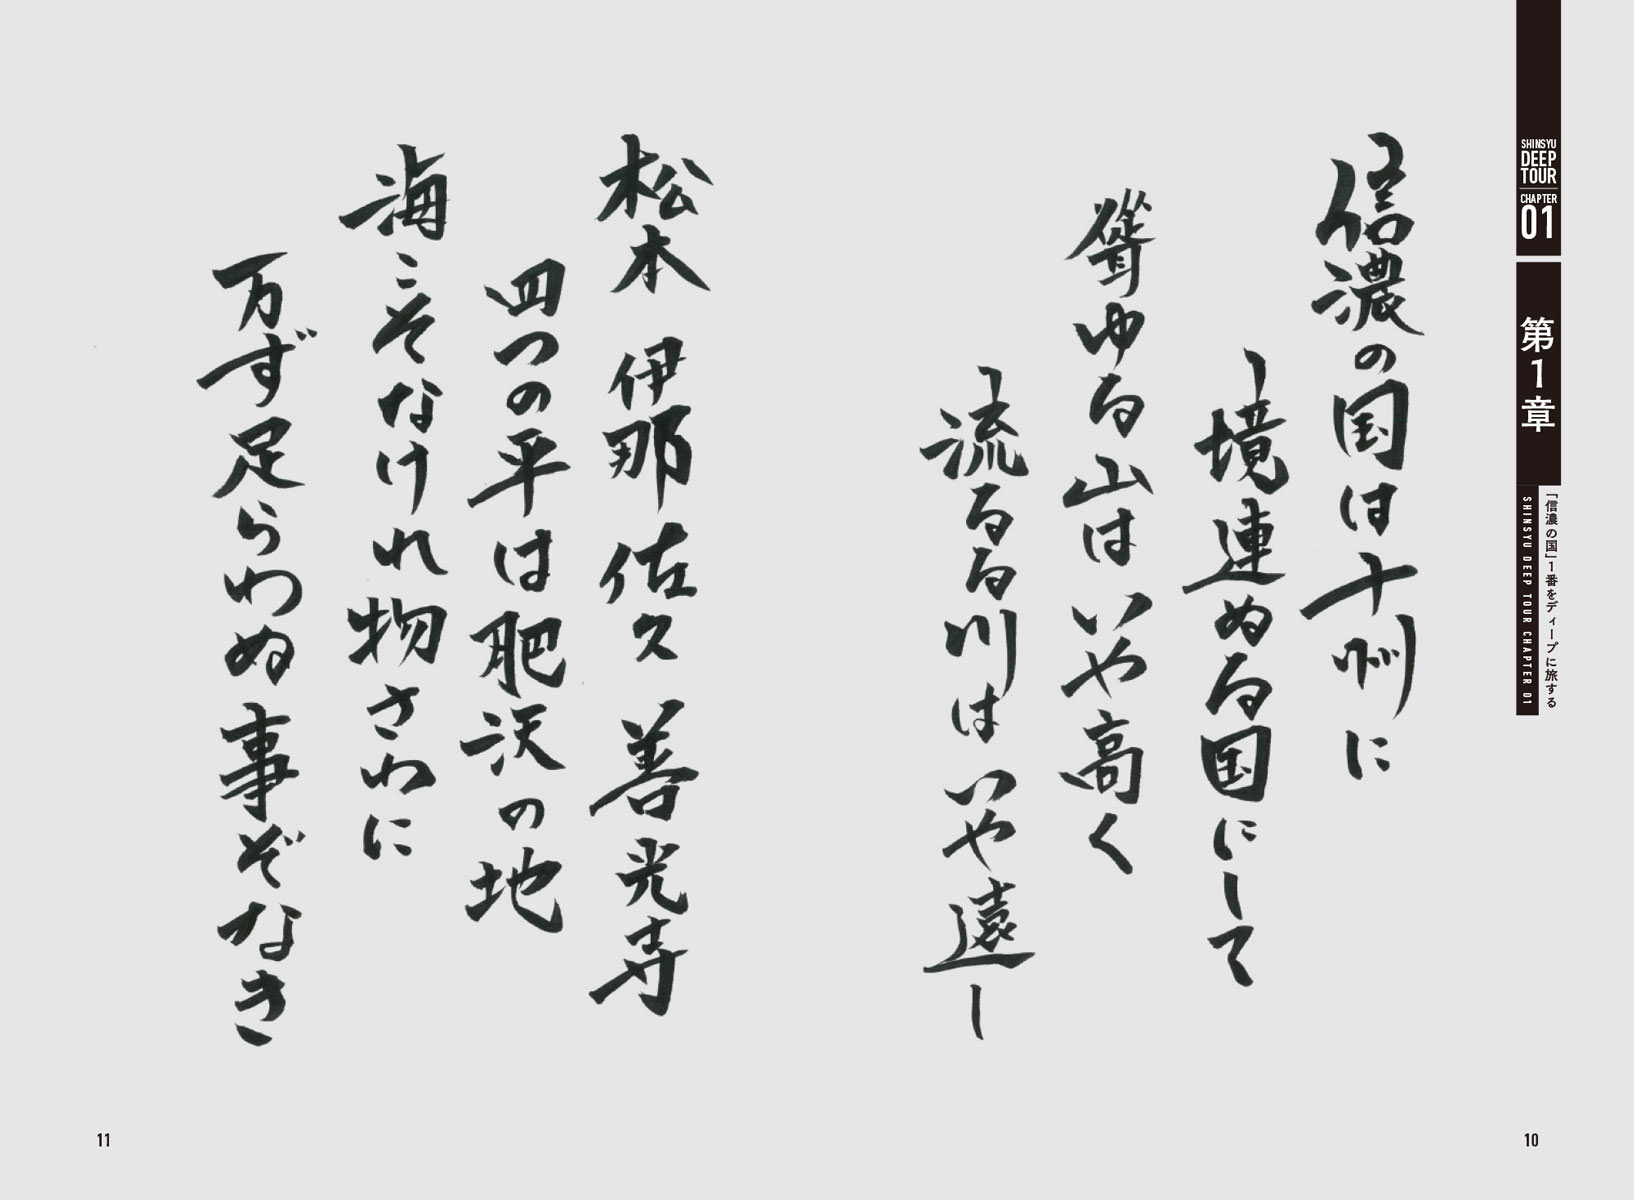 SHINSYU
DEEP
TOUR
CHAPTER
01
第1章
「信濃の国」1番をディープに旅する
SHINSYU DEEP TOUR CHAPTER 01
信濃の国は十州に
境連ぬる国にして
聳ゆる山はいや高く
流るる川はいや遠し
松本 伊那 佐久 善光寺
四つの平は肥沃の地
海こそなけれ物さわに
万ず足らわぬ事ぞなき
10
11